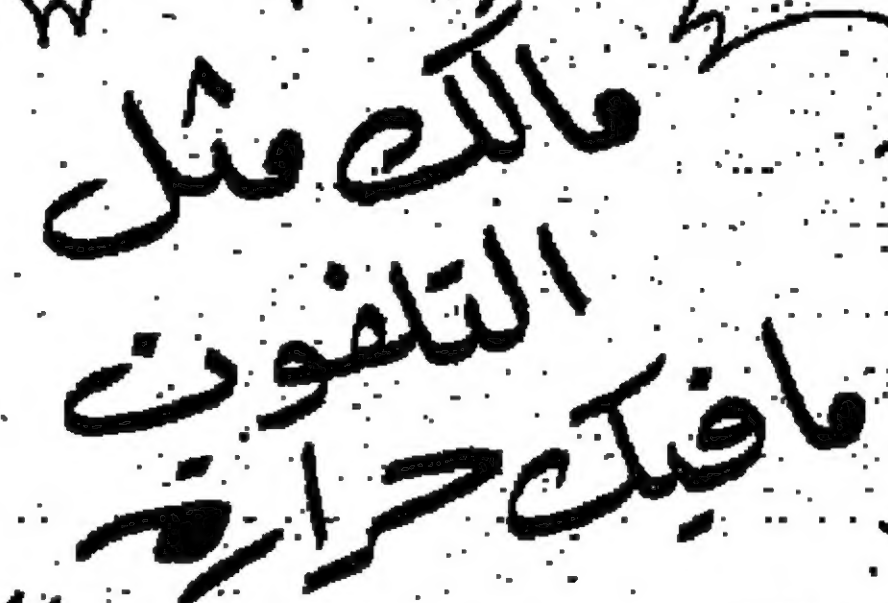 مالك مثل
التلفون
مافيك حرارة